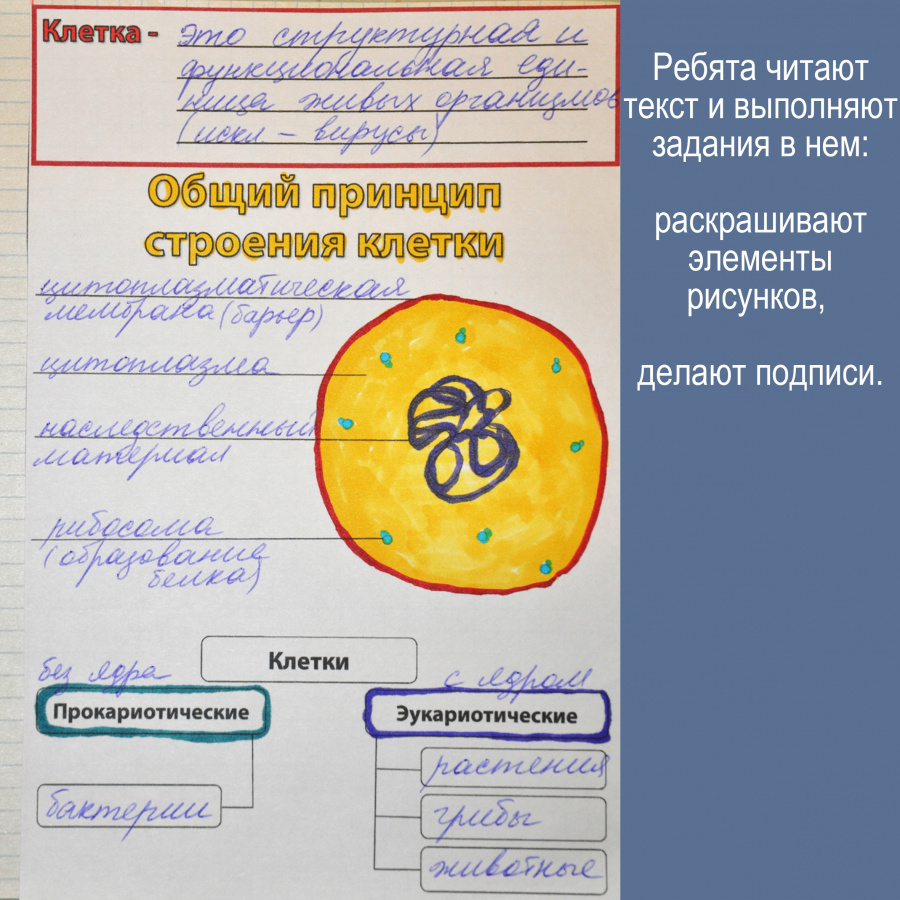 Клетка - это структурная и
функциональная еди-
ница живых организмов
(искл - вирусы)
Общий принцип
строения клетки
цитоплазматическая
мембрана (барьер)
цитоплазма
наследственный
материал
рибосома
(образование
белка)
Клетки
без ядра
с ядром
Прокариотические
Эукариотические
бактерии
растения
грибы
животные
Ребята читают
текст и выполняют
задания в нем:
раскрашивают
элементы
рисунков,
делают подписи.